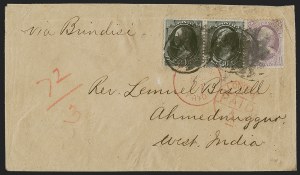 via Brindisi
72
3
Rev. Lemuel Bissell
Ahmednuggur
West India
PAID